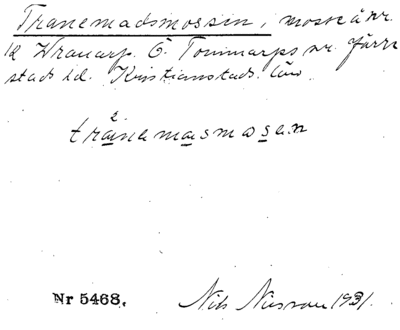 Tranemadsmossen, mosse å nr.
12 Vranarp. Ö. Tommarps sn. Järre
stads hd. Kristianstads län.
tränamasmosen
Nr 5468.
Nils Nilsson 1931.